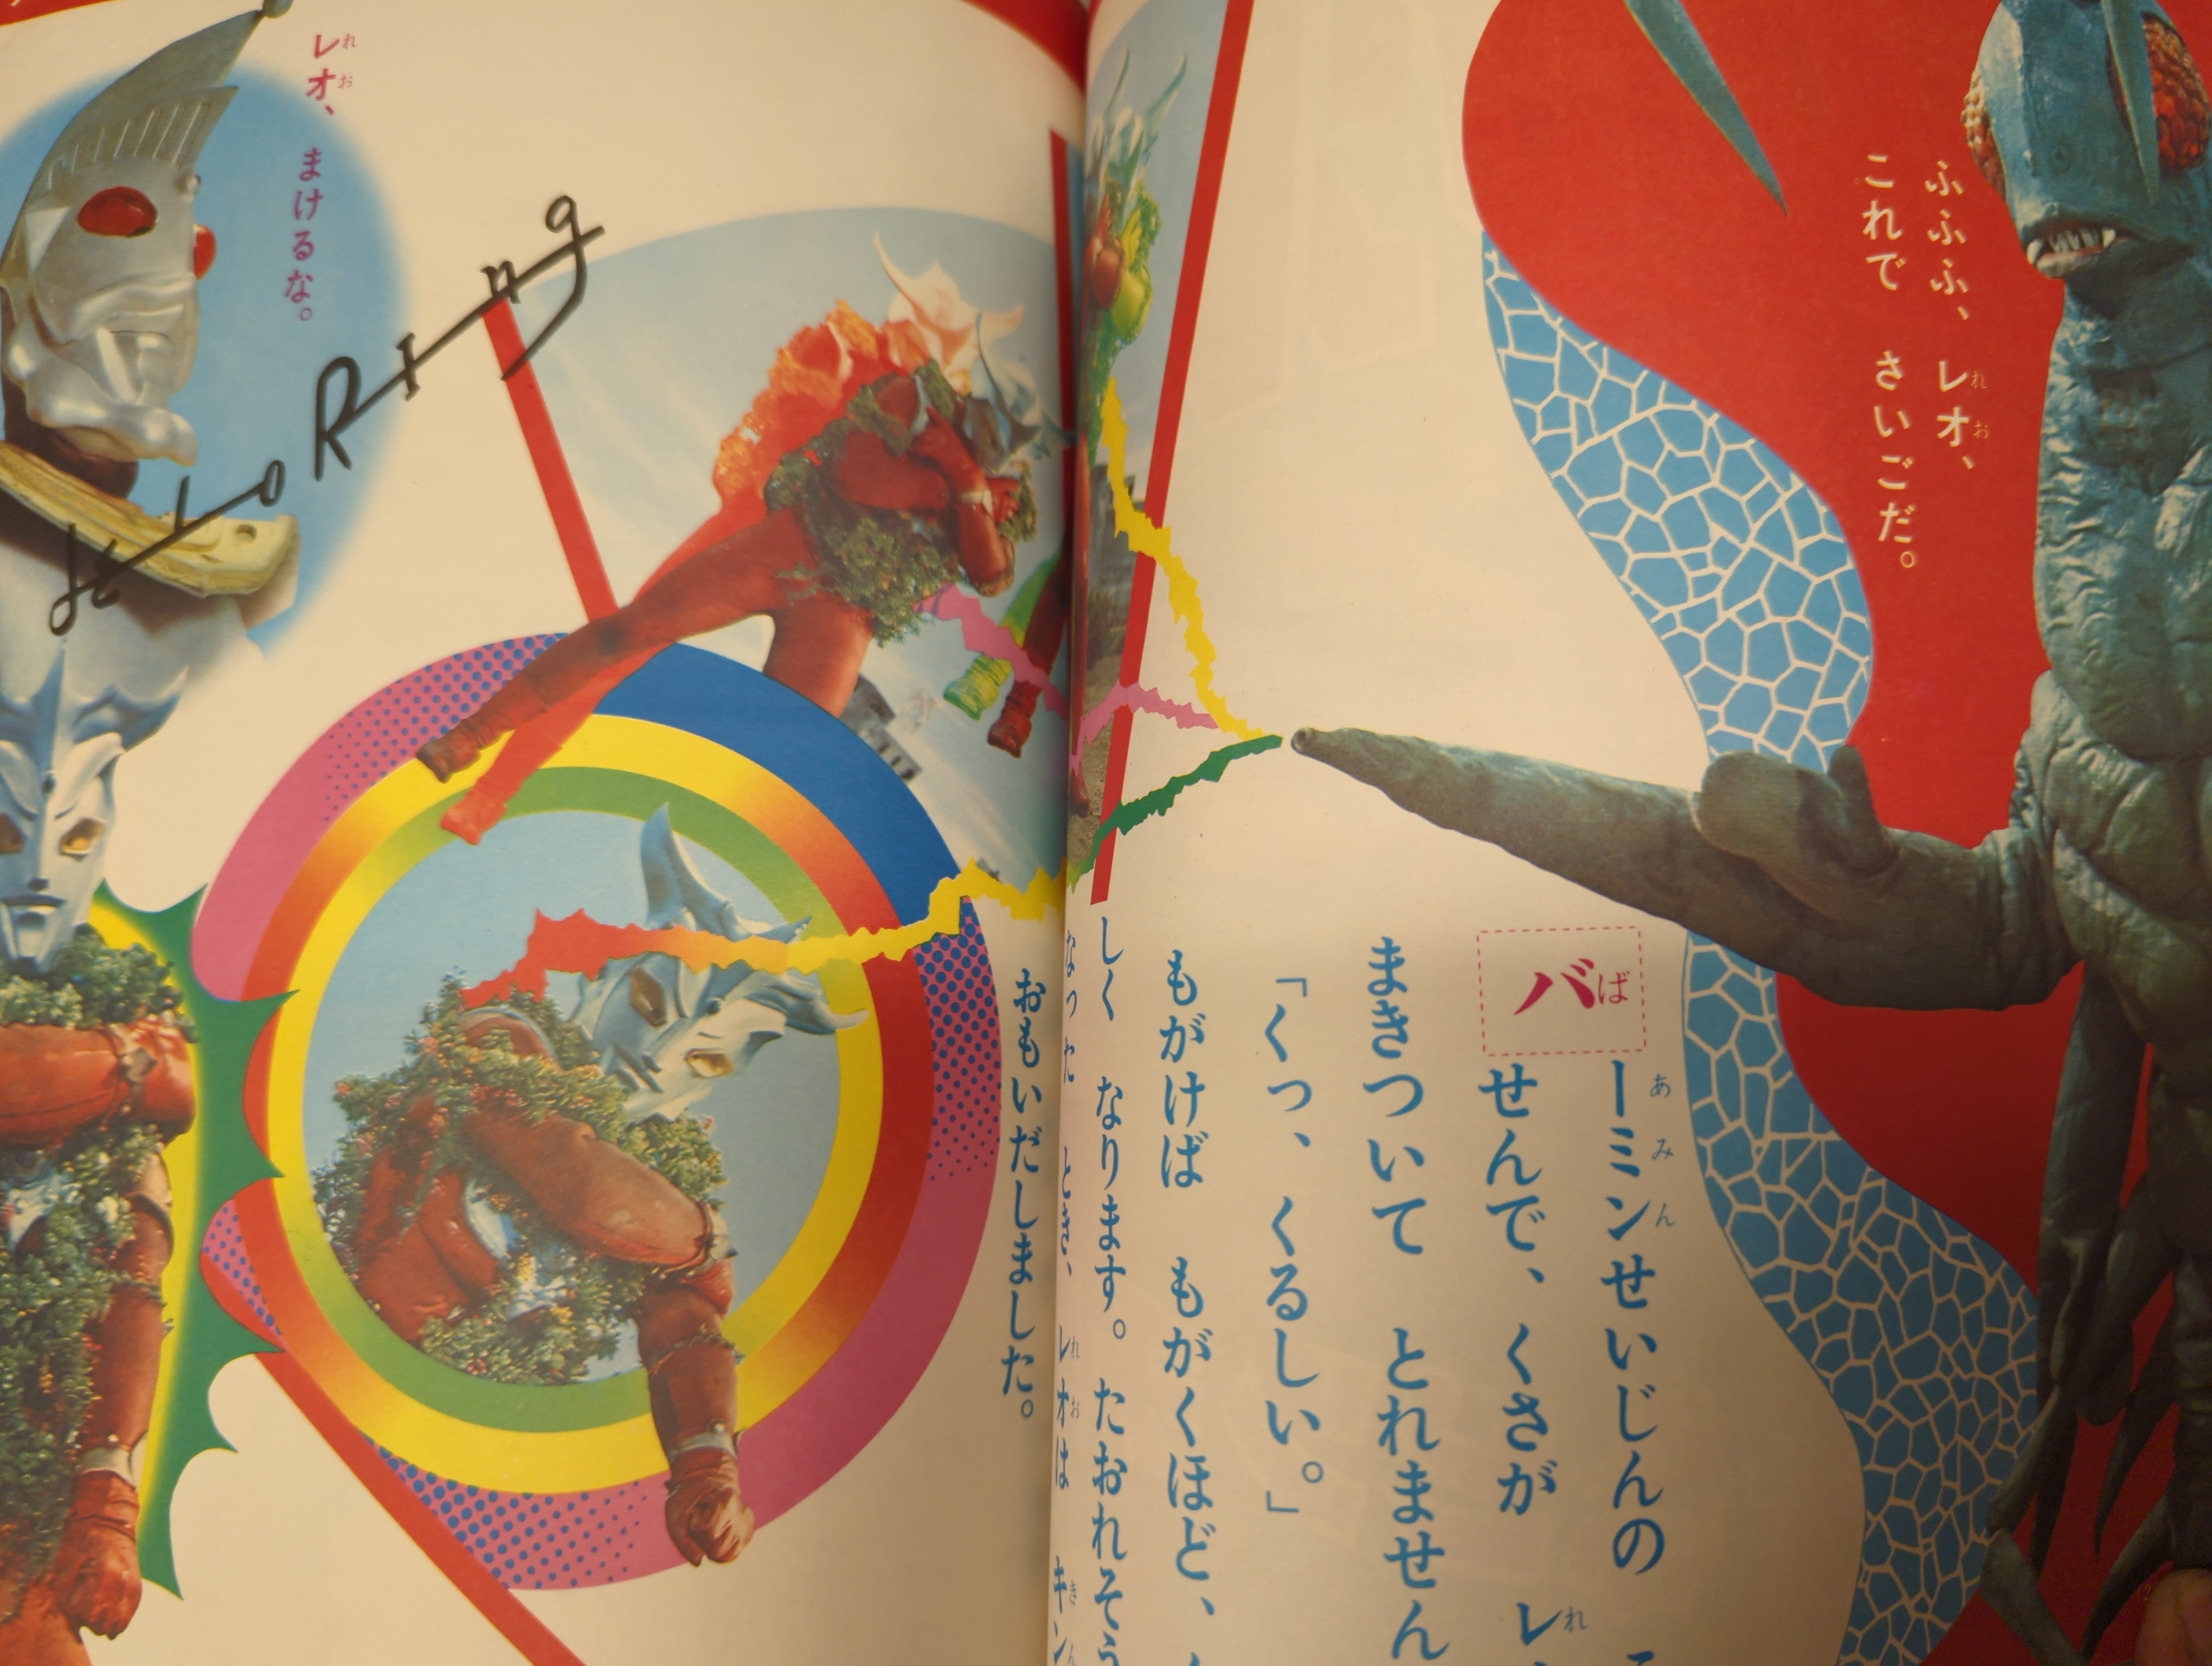 ふふふ、レオ、
これで さいごだ。
バーミンせいじんの
せんで、くさが レ
まきついて とれません
「くっ、くるしい。」
もがけば もがくほど、
しく なります。たおれそう
なった とき、レオは キン
おもいだしました。
レオ、まけるな。
Ring